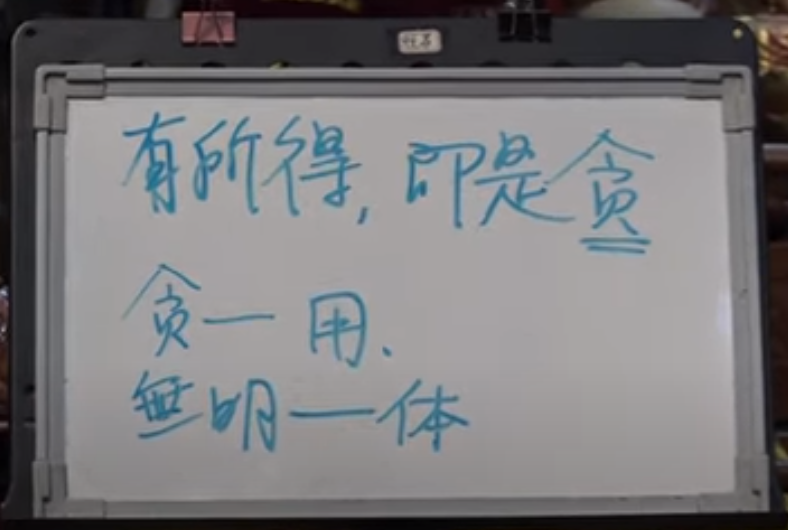 有所得,即是贪
贪一用、
無明一体